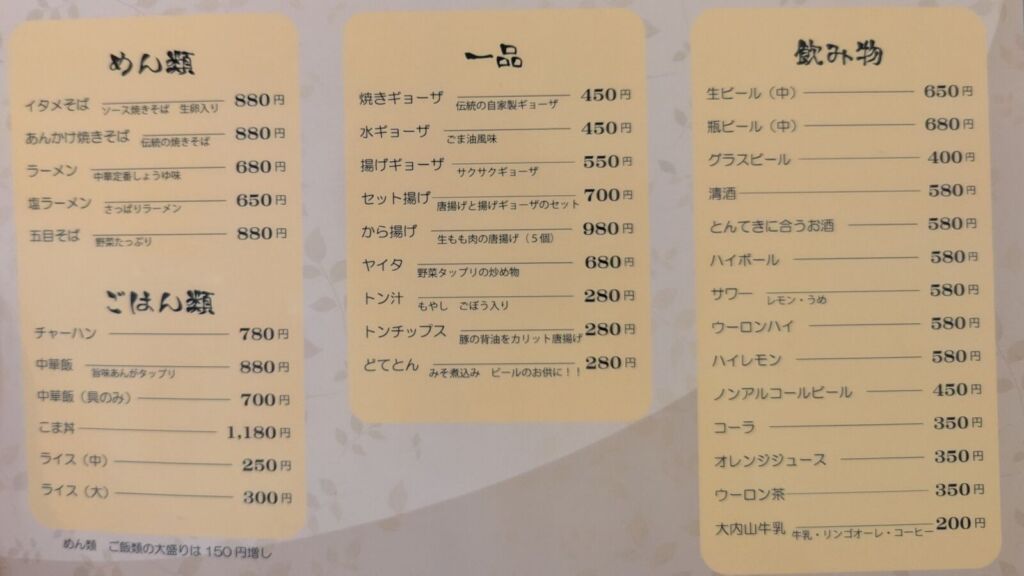 めん類
イタメそば 880円
ソース焼きそば 生卵入り
あんかけ焼きそば 880円
伝統の焼きそば
ラーメン 680円
中華定番しょうゆ味
塩ラーメン 650円
さっぱりラーメン
五目そば 880円
野菜たっぷり
ごはん類
チャーハン 780円
中華飯 880円
旨味あんがタップリ
中華飯（具のみ） 700円
こま丼 1,180円
ライス（中） 250円
ライス（大） 300円
めん類 ご飯類の大盛りは150円増し
一品
焼きギョーザ 450円
伝統の自家製ギョーザ
水ギョーザ 450円
ごま油風味
揚げギョーザ 550円
サクサクギョーザ
セット揚げ 700円
唐揚げと揚げギョーザのセット
から揚げ 980円
生もも肉の唐揚げ（5個）
ヤイタ 680円
野菜タップリの炒め物
トン汁 280円
もやし ごぼう入り
トンチップス 280円
豚の背油をカリット唐揚げ
どてとん 280円
みそ煮込み ビールのお供に！！
飲み物
生ビール（中） 650円
瓶ビール（中） 680円
グラスビール 400円
清酒 580円
とんてきに合うお酒 580円
ハイボール 580円
サワー 580円
レモン・うめ
ウーロンハイ 580円
ハイレモン 580円
ノンアルコールビール 450円
コーラ 350円
オレンジジュース 350円
ウーロン茶 350円
大内山牛乳 200円
牛乳・リンゴオーレ・コーヒー